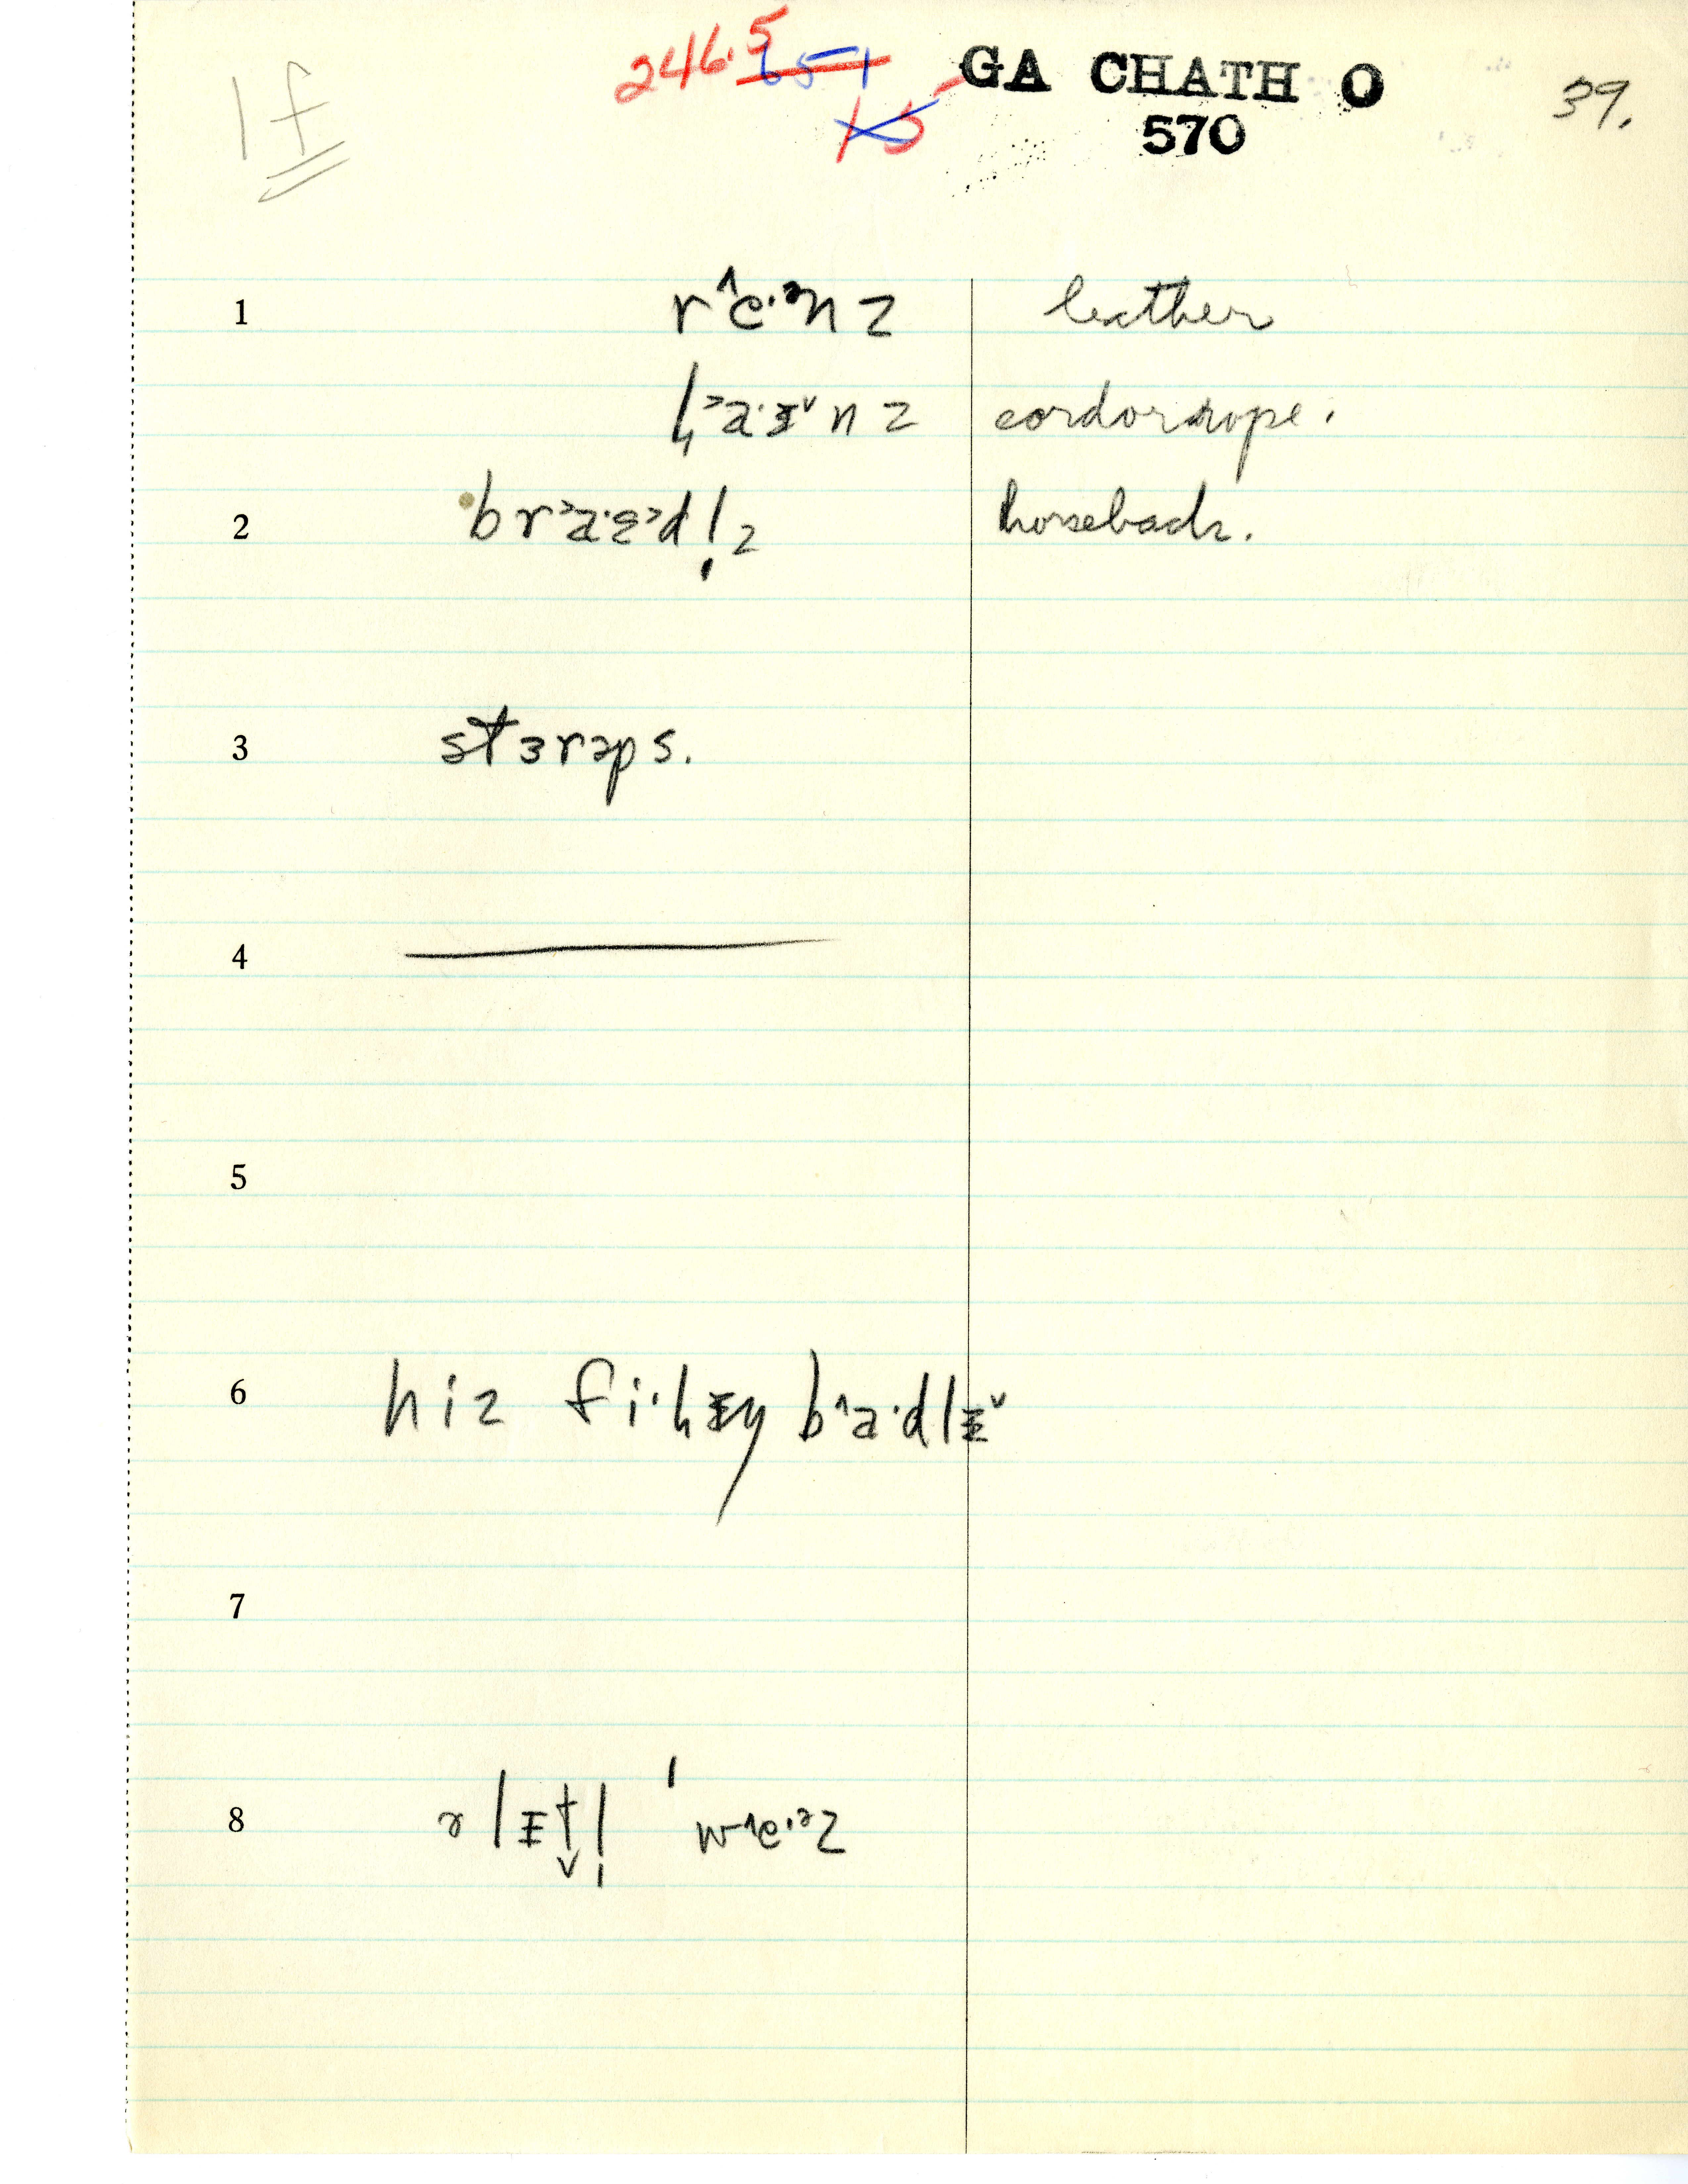 1f 246.5 651 GA CHATH O 39.
15 570
1 r˄e·ᵊnz leather
l̦˃a·ɪ˅nz cord or rope.
2 br˃a·ɛ˃dl̩z horseback.
3 stɜrəps.
4
5
6 hiz fi·l̦ɪŋ b˄a·dlɪ˅
7
8 ə lɪt̬l̩ ˈw˄e·ᵊz